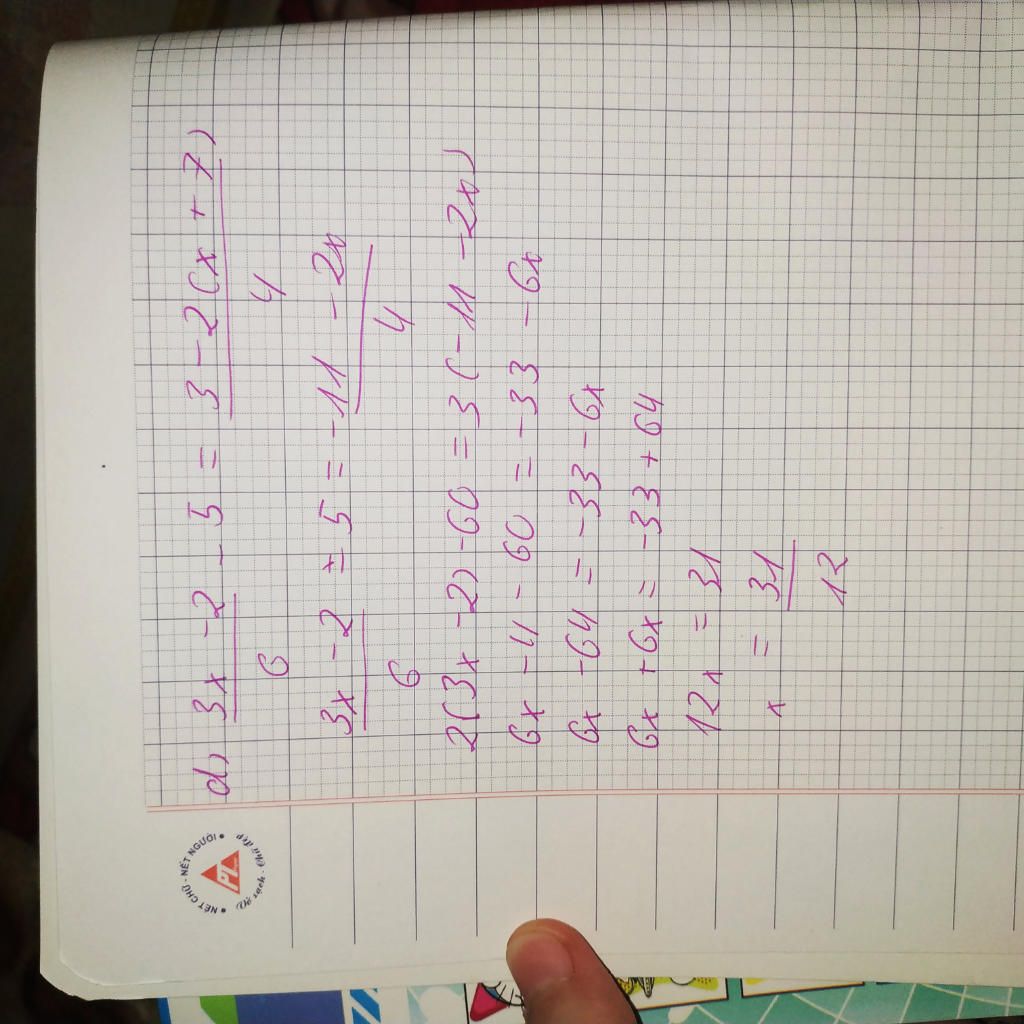 d) 3x - 2 / 6 - 5 = 3 - 2(x + 7) / 4
3x - 2 / 6 - 5 = -11 - 2x / 4
2(3x - 2) - 60 = 3(-11 - 2x)
6x - 4 - 60 = -33 - 6x
6x - 64 = -33 - 6x
6x + 6x = -33 + 64
12x = 31
x = 31 / 12
NÉT CHỮ - NẾT NGƯỜI
PL
Chữ đẹp